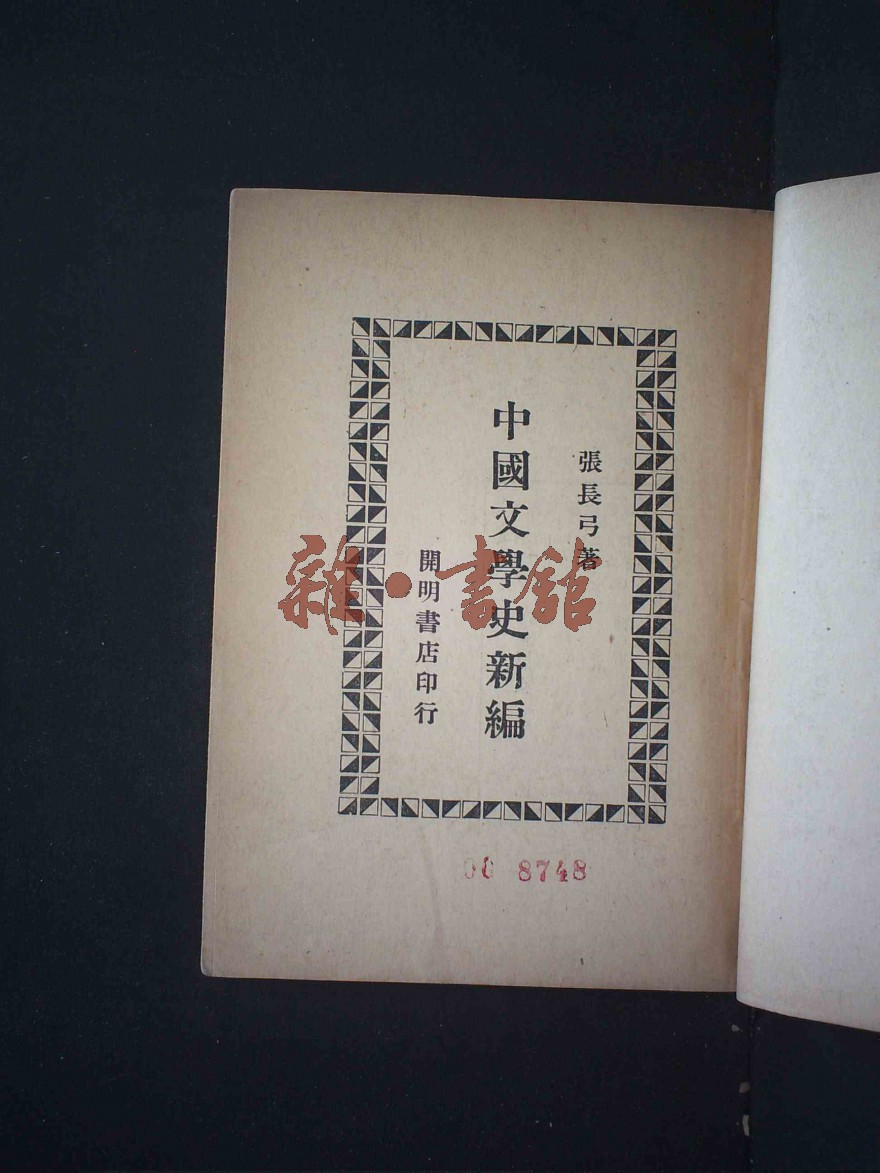 張長弓著
中國文學史新編
開明書店印行
雜·書館
00 8748